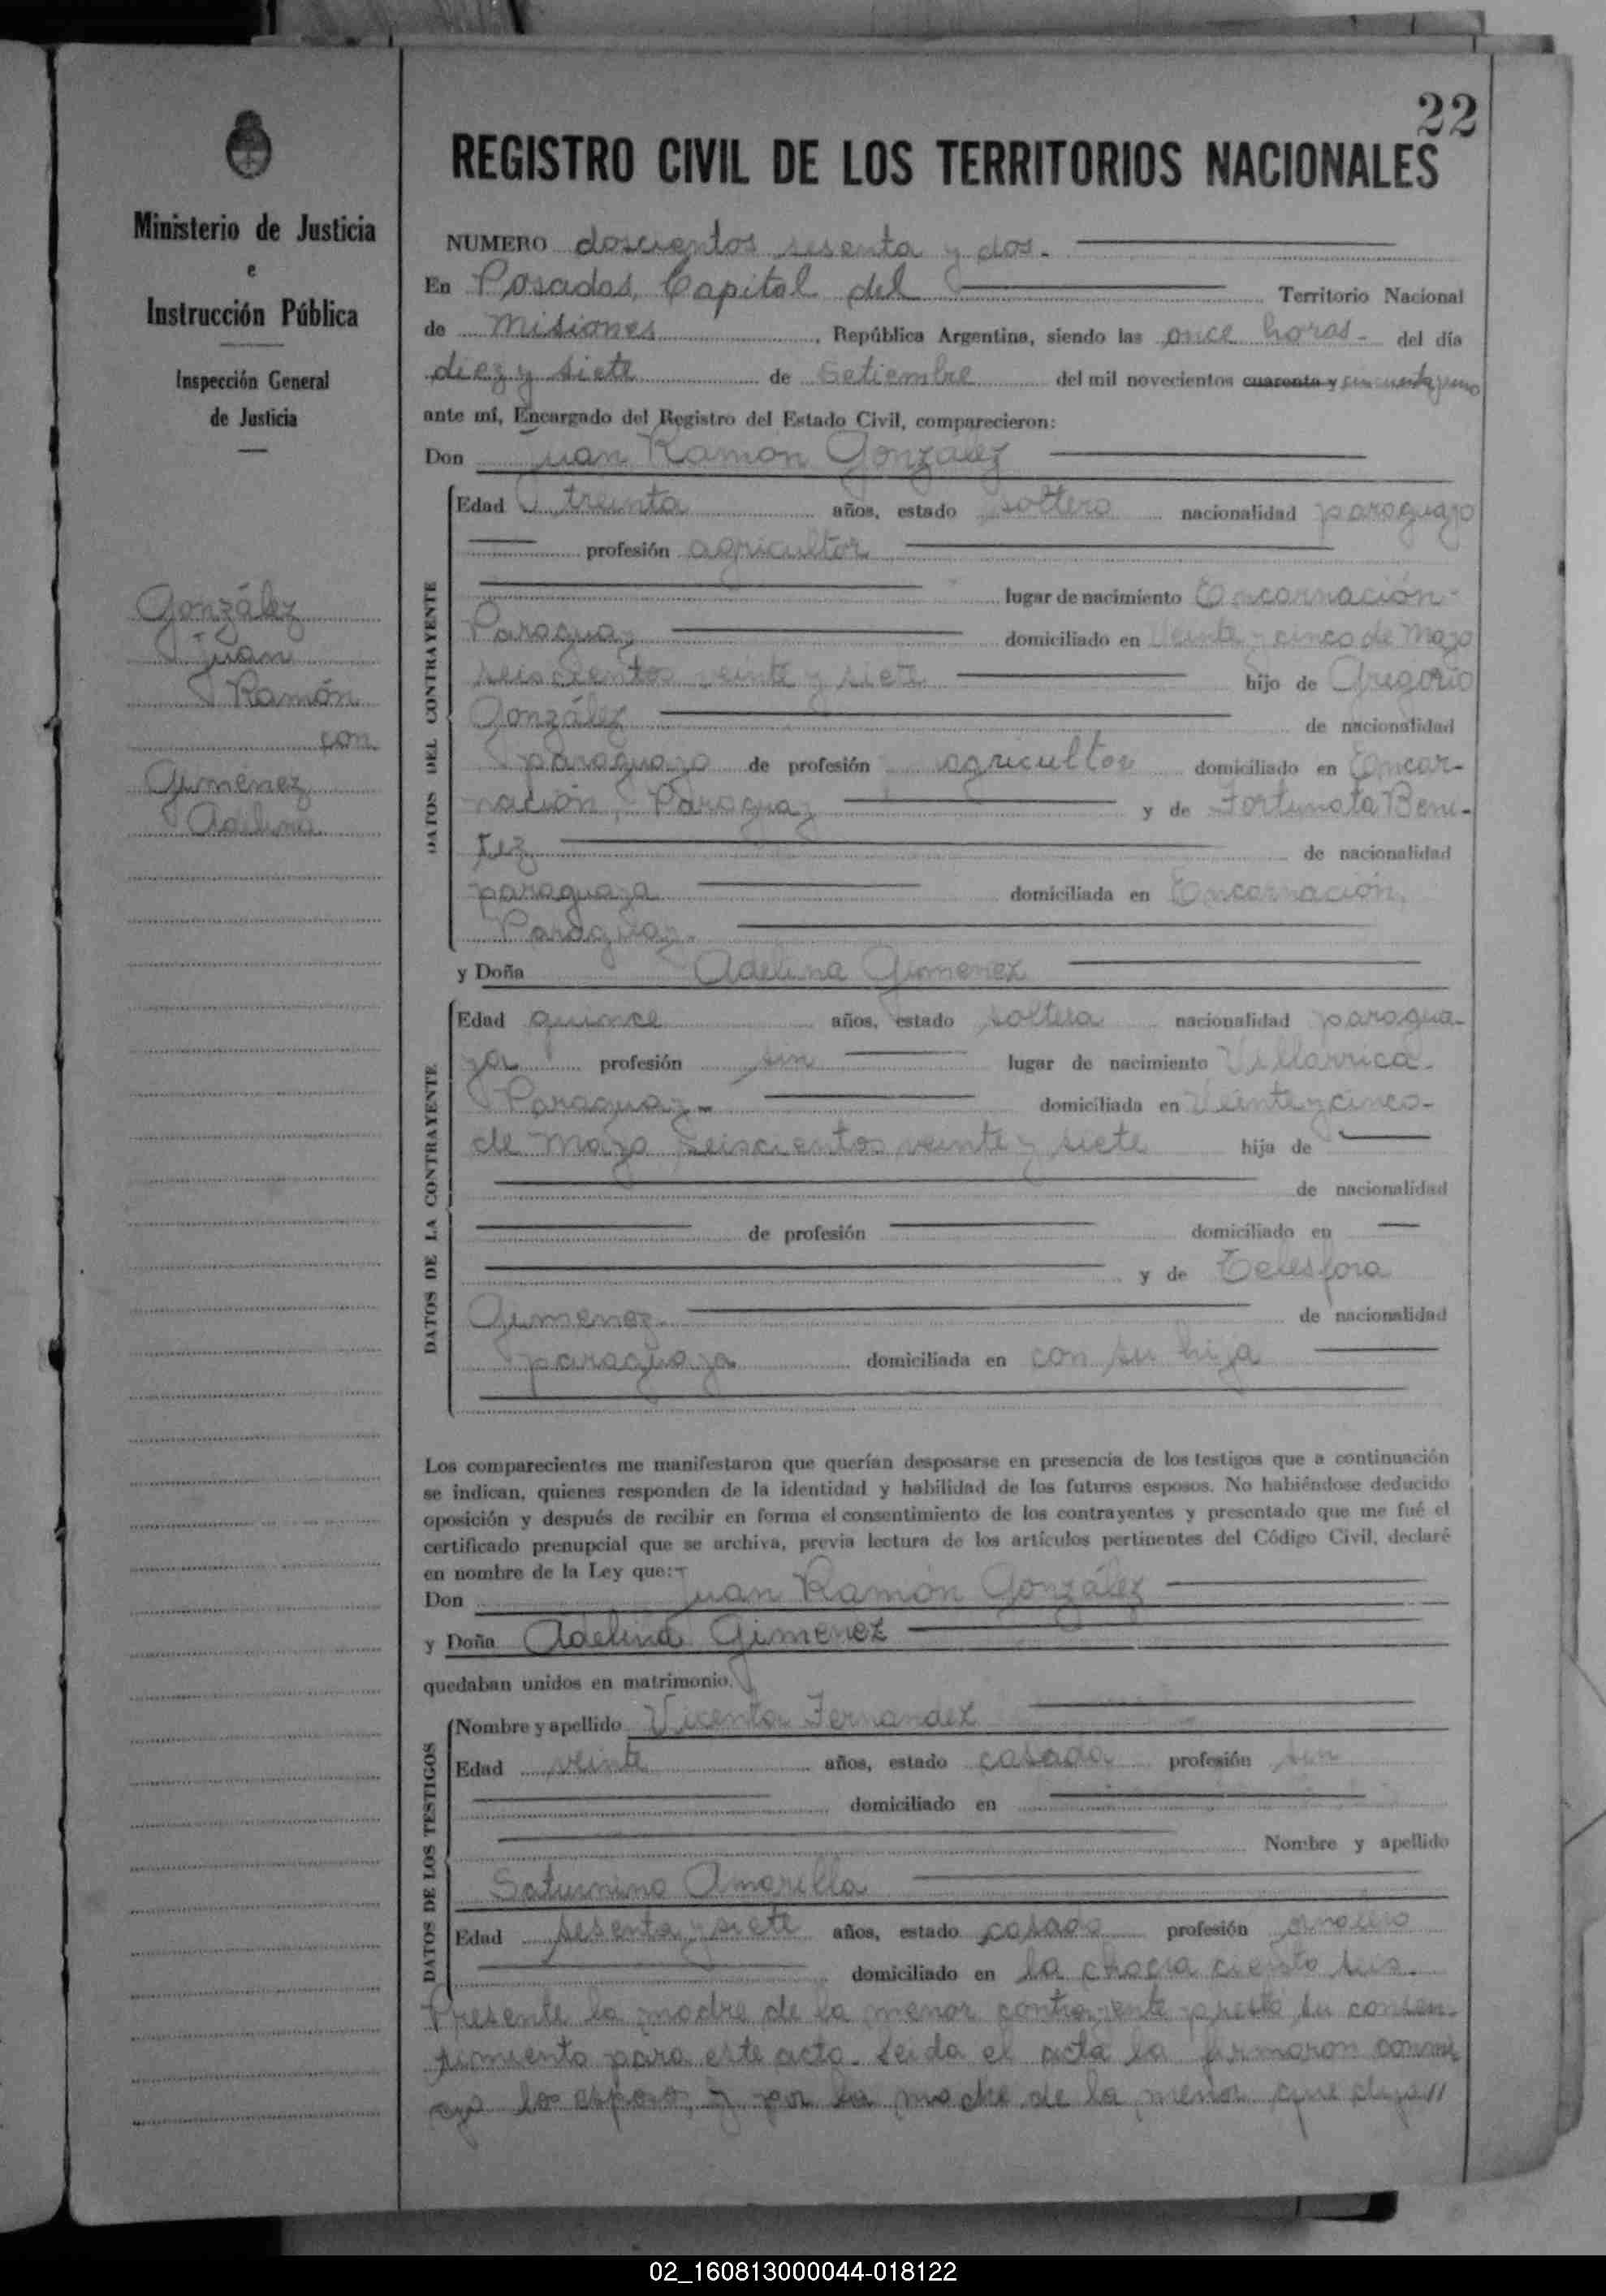 22
REGISTRO CIVIL DE LOS TERRITORIOS NACIONALES
Ministerio de Justicia
e
Instrucción Pública
Inspección General
de Justicia
González
Juan
Ramón
con
Gimenez
Adelina
NUMERO doscientos sesenta y dos.
En Posadas, Capital del Territorio Nacional
de Misiones, República Argentina, siendo las once horas - del día
diez y siete de Setiembre del mil novecientos cuarenta y cincuenta y uno
ante mí, Encargado del Registro del Estado Civil, comparecieron:
Don Juan Ramón González
DATOS DEL CONTRAYENTE
Edad treinta años, estado soltero nacionalidad paraguayo
profesión agricultor
lugar de nacimiento Encarnación-
Paraguay domiciliado en Veinte y cinco de Mayo
seiscientos veinte y siete hijo de Gregorio
González de nacionalidad
paraguayo de profesión agricultor domiciliado en Encar-
nación, Paraguay y de Fortunata Bení-
tez de nacionalidad
paraguaya domiciliada en Encarnación,
Paraguay.
y Doña Adelina Gimenez
DATOS DE LA CONTRAYENTE
Edad quince años, estado soltera nacionalidad paragua-
ya profesión sin lugar de nacimiento Villarrica-
Paraguay- domiciliada en Veinte y cinco-
de Mayo seiscientos veinte y siete hija de
de nacionalidad
de profesión domiciliado en
y de Telesfora
Gimenez de nacionalidad
paraguaya domiciliada en con su hija
Los comparecientes me manifestaron que querían desposarse en presencia de los testigos que a continuación
se indican, quienes responden de la identidad y habilidad de los futuros esposos. No habiéndose deducido
oposición y después de recibir en forma el consentimiento de los contrayentes y presentado que me fué el
certificado prenupcial que se archiva, previa lectura de los artículos pertinentes del Código Civil, declaré
en nombre de la Ley que:
Don Juan Ramón González
y Doña Adelina Gimenez
quedaban unidos en matrimonio.
DATOS DE LOS TESTIGOS
Nombre y apellido Vicenta Fernandez
Edad veinte años, estado casada profesión sin
domiciliado en
Nombre y apellido
Saturnino Amarilla
Edad sesenta y siete años, estado casado profesión
domiciliado en la chacra ciento seis.
Presente la madre de la menor contrayente presta su consen-
timiento para este acto. Leida el acta la firmaron conmi
go los esposos, y por la madre de la menor que dijo//
02_160813000044-018122